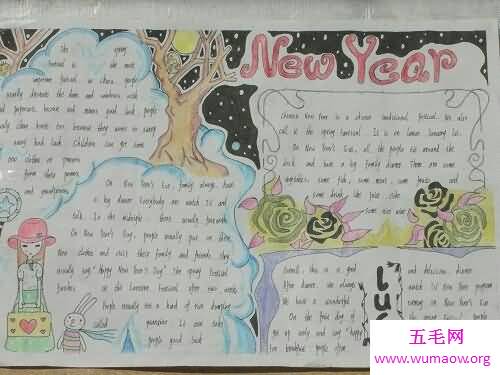 New Year
The spring
festival is the most
important festival in China. people
usually decorate the doors and windows with
red papercuts. because red means good luck. people
usually clean house too. because they want to sweep
away bad luck. Children can get some
new clothes or presents
from their parents
and grandparents.
On New Year's Eve, family always have
a big dinner. Everybody are watch TV and
talk. In the midnight there usually fireworks.
On New Year's Day, people usually put on their
New clothes and visit their family and friends. they
usually say: "Happy New Year's Day." The spring Festival
finishes at the Lantern Festival after two weeks.
People usually eat a kind of rice dumpling
called yuanxiao. It can take
people good luck
Chinese New Year is a Chinese traditional festival. We also
call it the spring festival. It is on lunar January 1st.
On New Year's Eve, all the people sit around the
desk and have a big family dinner. There are some
vegetables, some fish, some meat, some prawns and
some drink, like juice, coke,
some rice wine
Overall, this is a good and delicious dinner.
After dinner, We always watch TV New Year program
We have a wonderful evening on New Year's Eve.
On the first day of
get up early and say "happy
For breakfast people often
luc
五毛网
www.wumaow.org